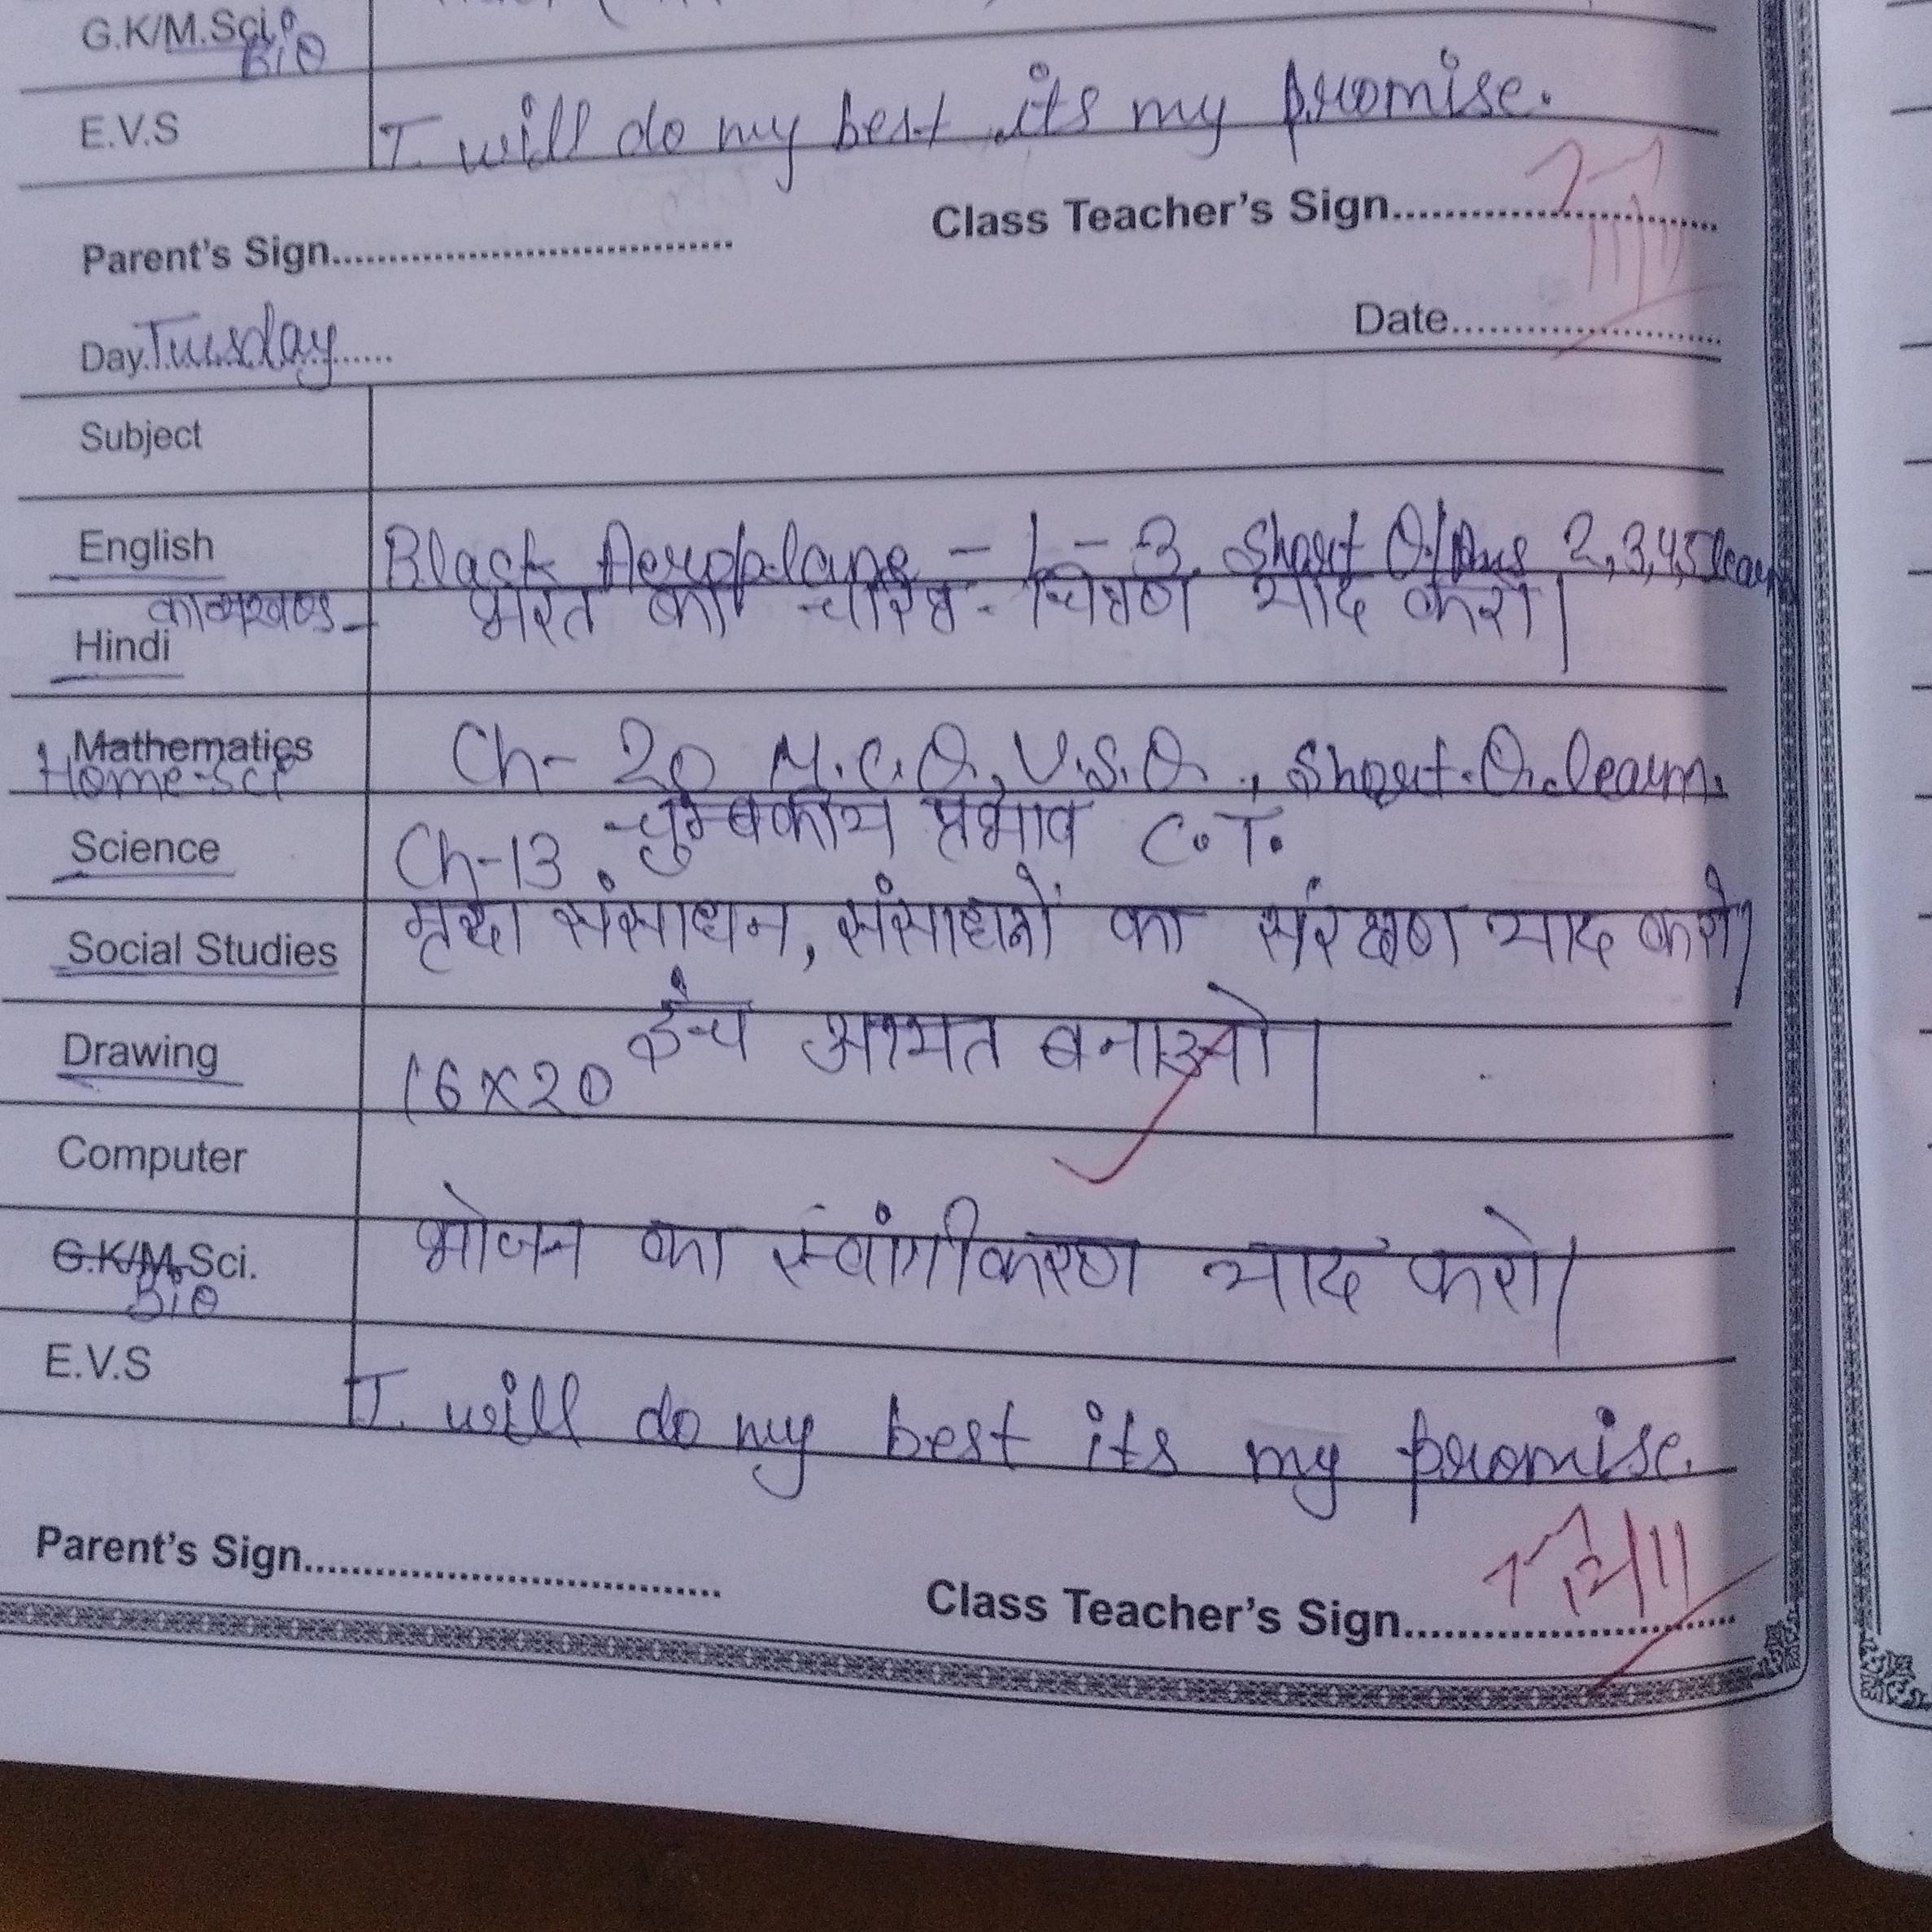 G.K/M.Sci.
Bio
E.V.S I will do my best its my promise.
Parent's Sign........................................ Class Teacher's Sign................................
Day.Tuesday...... Date...........................
Subject
English Black Aeroplane - L - 3. Short Q./Ans 2,3,4,5 learn
Hindi काव्यखण्ड - भरत का चरित्र - चित्रण याद करो।
Mathematics
Home-sci Ch- 20 M.C.Q, V.S.Q., Short.Q.learn.
Science Ch-13. चुम्बकीय प्रभाव C.T.
Social Studies मृदा संसाधन, संसाधनों का संरक्षण याद करो।
Drawing 16x20 इंच आयत बनाओ।
Computer
G.K/M.Sci. भोजन का स्वांगीकरण याद करो।
Bio
E.V.S I will do my best its my promise.
Parent's Sign........................................ Class Teacher's Sign................................